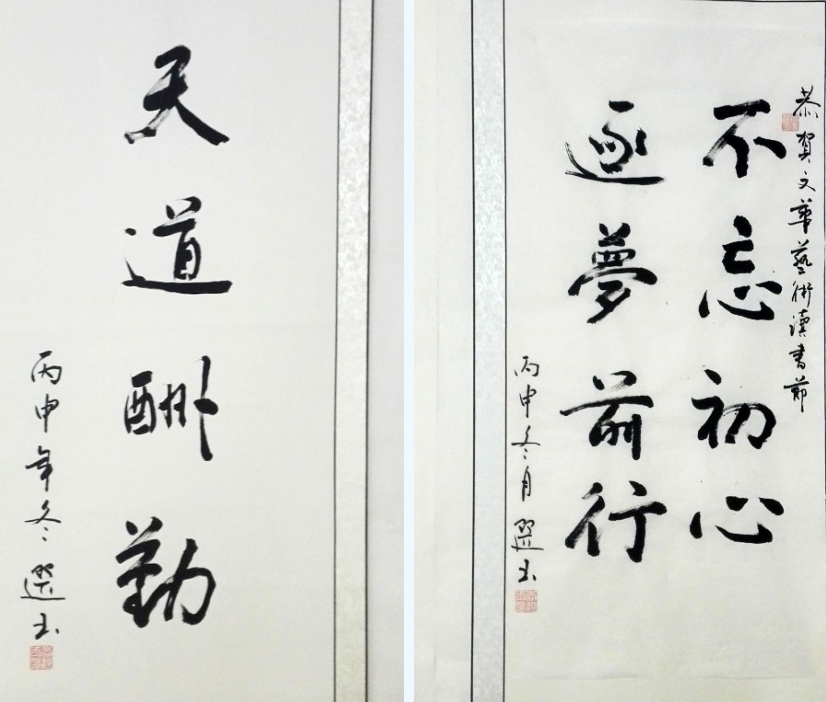 天道酬勤
丙申年冬選书
恭賀文華藝術讀書節
不忘初心
逐夢前行
丙申冬月選书